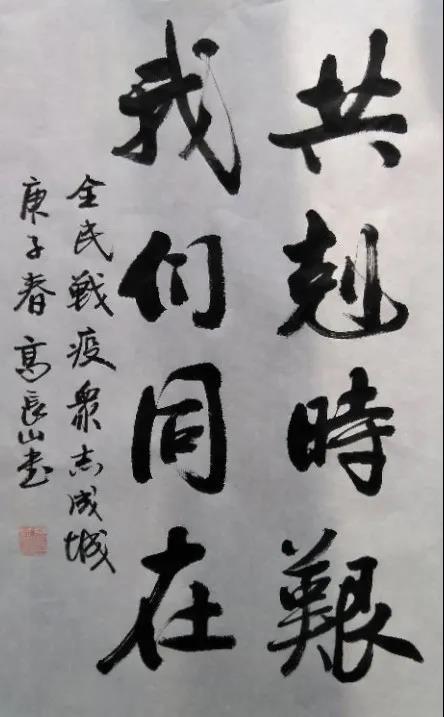 共剋時艱
我们同在
全民戦疫衆志成城
庚子春高長山书